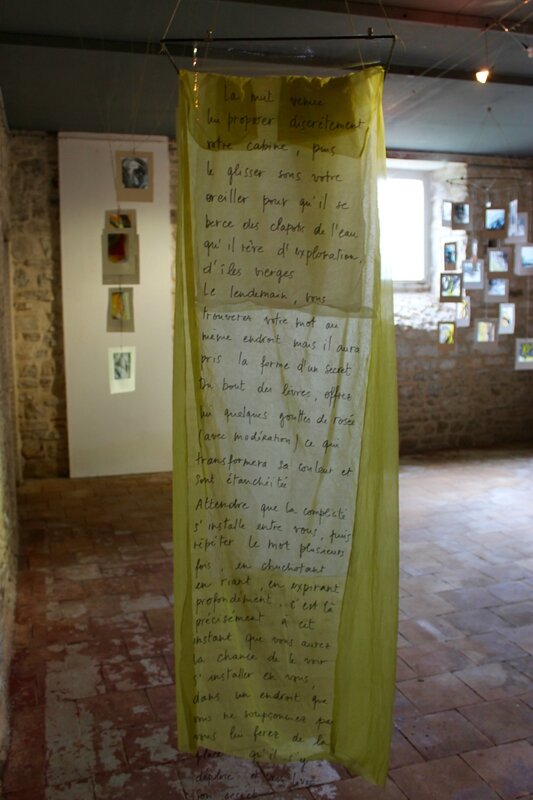 La nuit venue
lui proposer discrètement
votre cabine, puis
le glisser sous votre
oreiller pour qu'il se
berce des clapots de l'eau
qu'il rêve d'exploration,
d'îles vierges
Le lendemain, vous
trouverez votre mot au
même endroit mais il aura
pris la forme d'un secret
Du bout des lèvres, offrez
lui quelques gouttes de rosée
(avec modération) ce qui
transformera sa couleur et
sont étanchéité
Attendre que la complicité
s'installe entre vous, puis
répéter le mot plusieurs
fois, en chuchotant
en riant, en expirant
profondément. c'est là
précisément à cet
instant que vous aurez
la chance de le voir
s'installer en vous,
dans un endroit que
vous ne soupçonnez pas
vous lui ferez de la
place qu'il s'y
déplose et
son secret